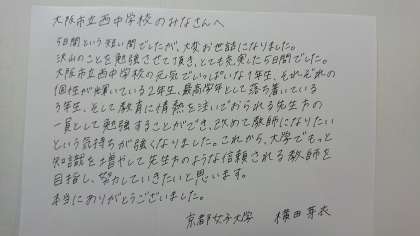 大阪市立西中学校のみなさんへ
5日間という短い間でしたが、大変お世話になりました。
沢山のことを勉強させて頂き、とても充実した5日間でした。
大阪市立西中学校の元気でいっぱいな1年生、それぞれの
個性が輝いている2年生、最高学年として落ち着いている
3年生、そして教育に情熱を注いでおられる先生方の
一員として勉強することができ、改めて教師になりたい
という気持ちが強くなりました。これから、大学でもっと
知識を増やして先生方のような信頼される教師を
目指し、努力していきたいと思います。
本当にありがとうございました。
京都女子大学 横田芽衣